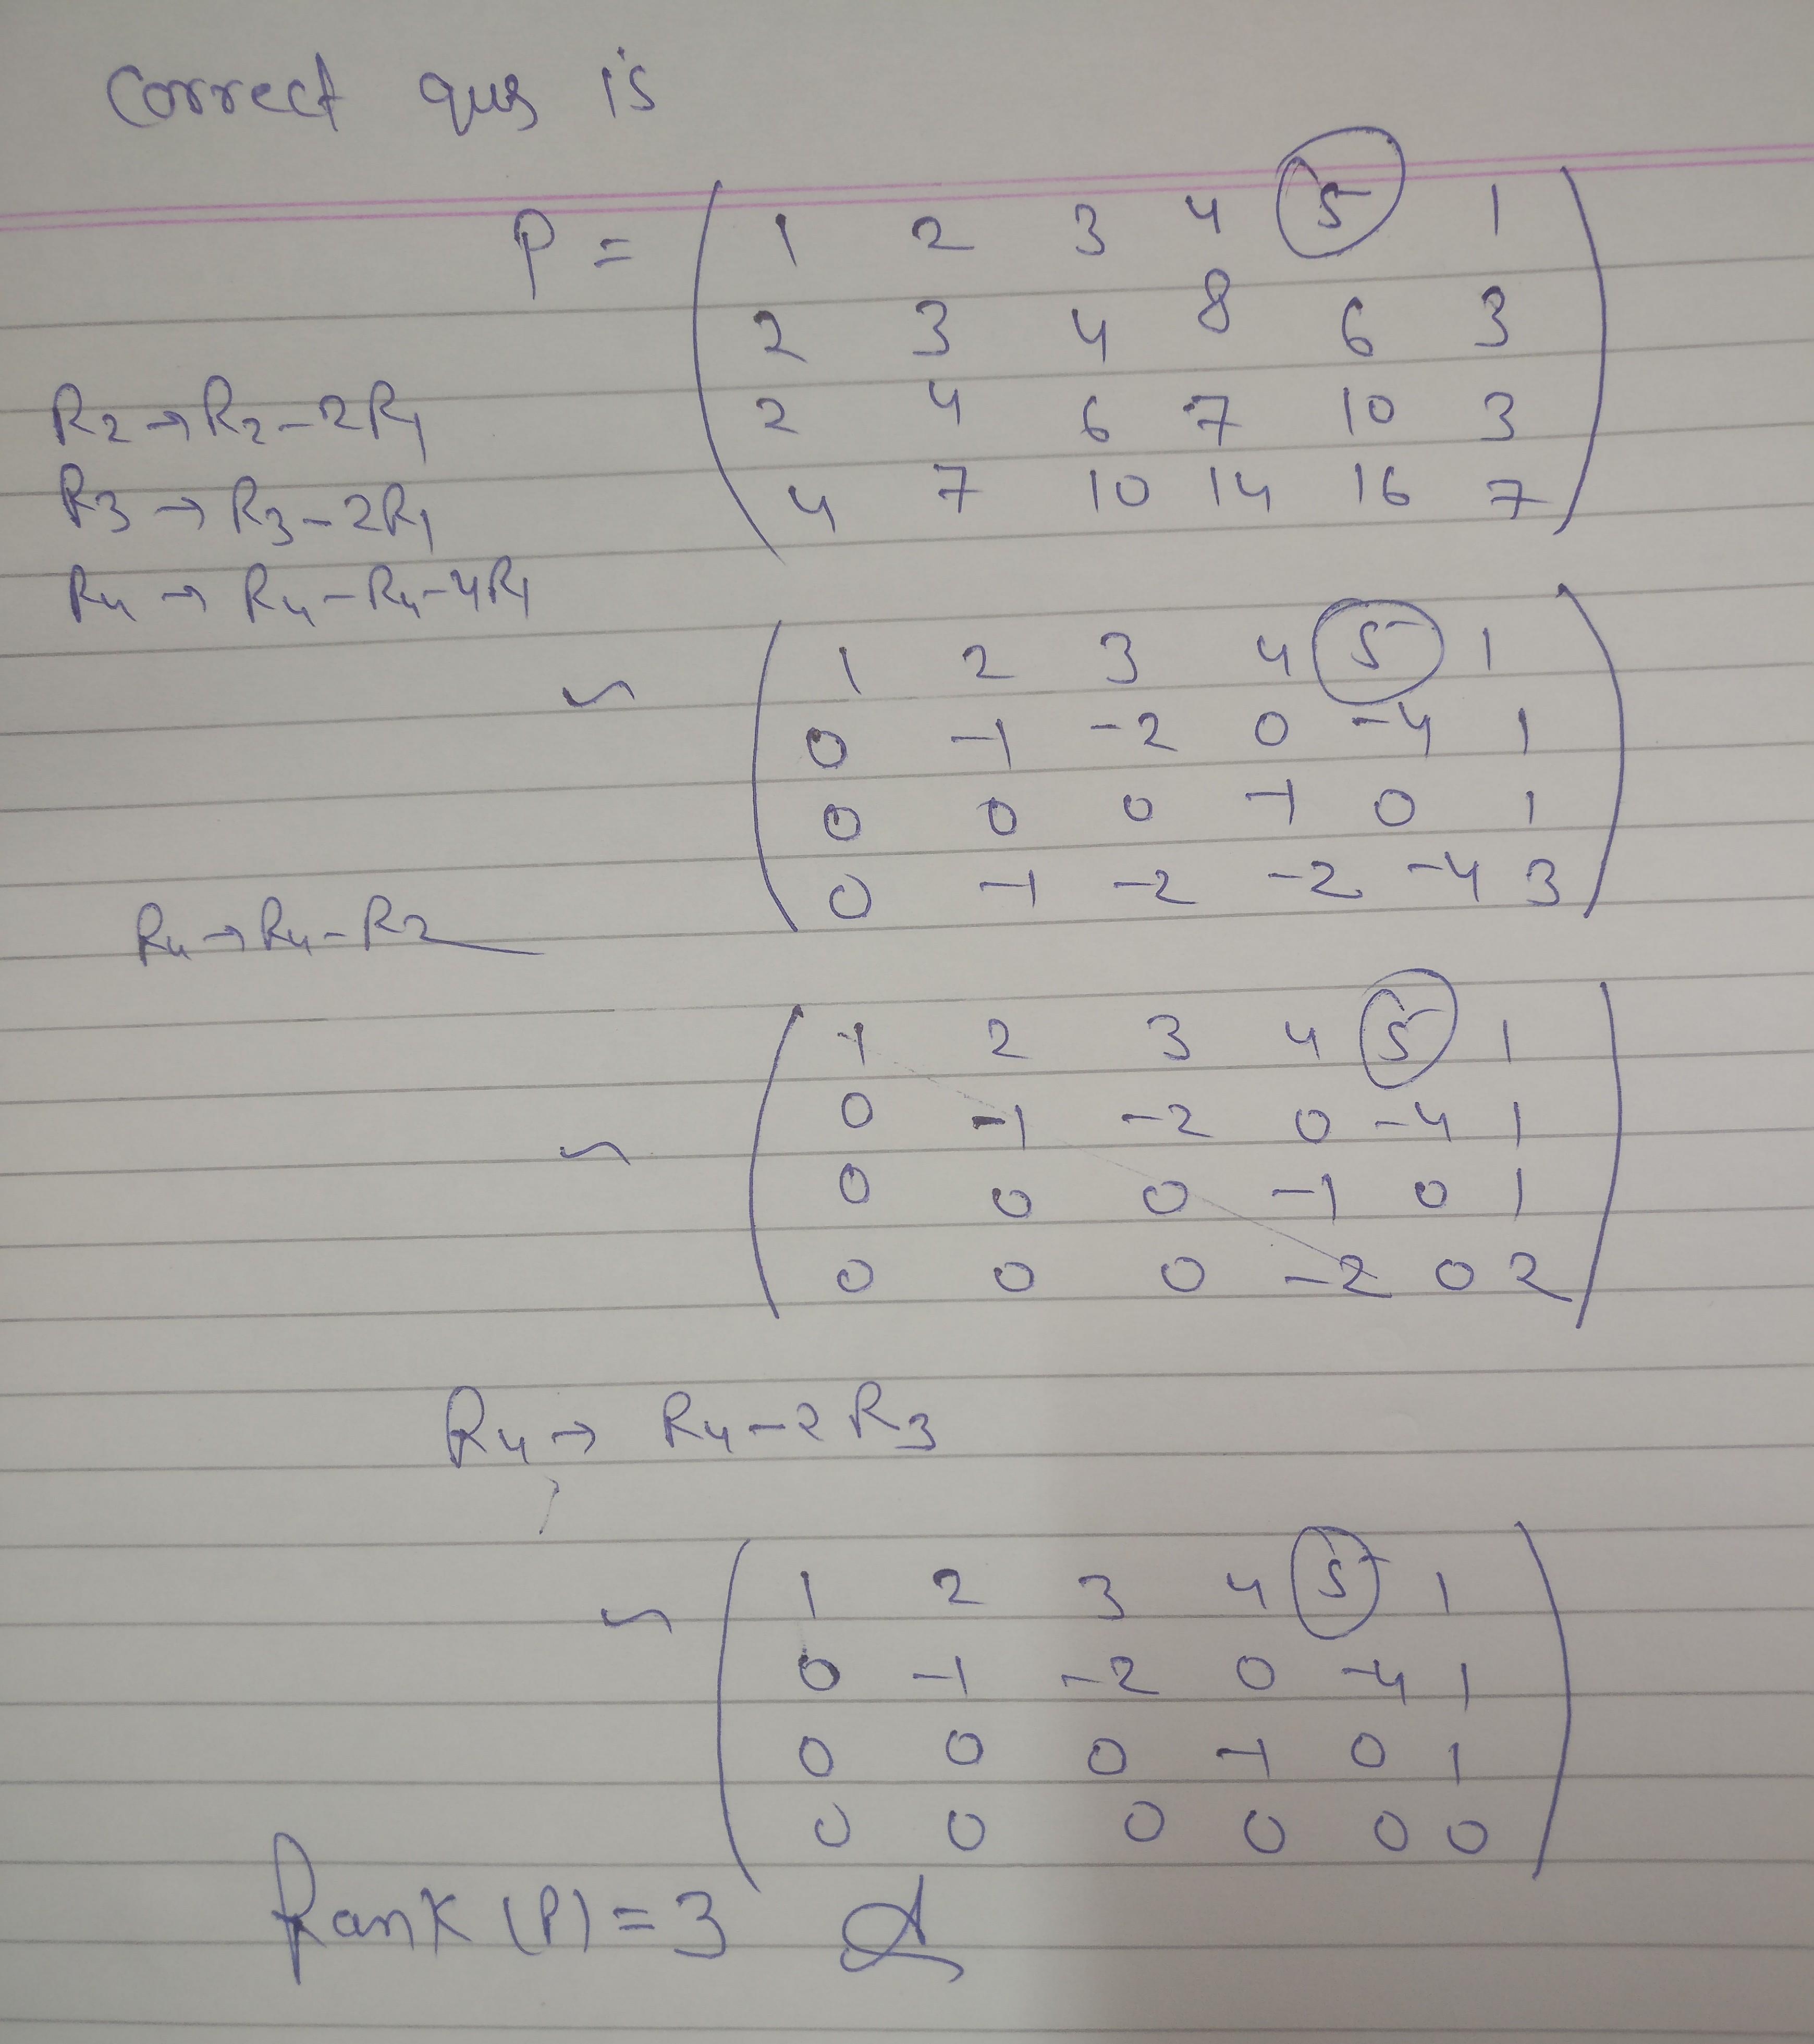 Correct ques is
P = ( 1 2 3 4 5 1
2 3 4 8 6 3
2 4 6 7 10 3
4 7 10 14 16 7 )
R2 → R2 - 2R1
R3 → R3 - 2R1
R4 → R4 - R4 - 4R1
~ ( 1 2 3 4 5 1
0 -1 -2 0 -4 1
0 0 0 -1 0 1
0 -1 -2 -2 -4 3 )
R4 → R4 - R2
~ ( 1 2 3 4 5 1
0 -1 -2 0 -4 1
0 0 0 -1 0 1
0 0 0 -2 0 2 )
R4 → R4 - 2 R3
~ ( 1 2 3 4 5 1
0 -1 -2 0 -4 1
0 0 0 -1 0 1
0 0 0 0 0 0 )
Rank (P) = 3